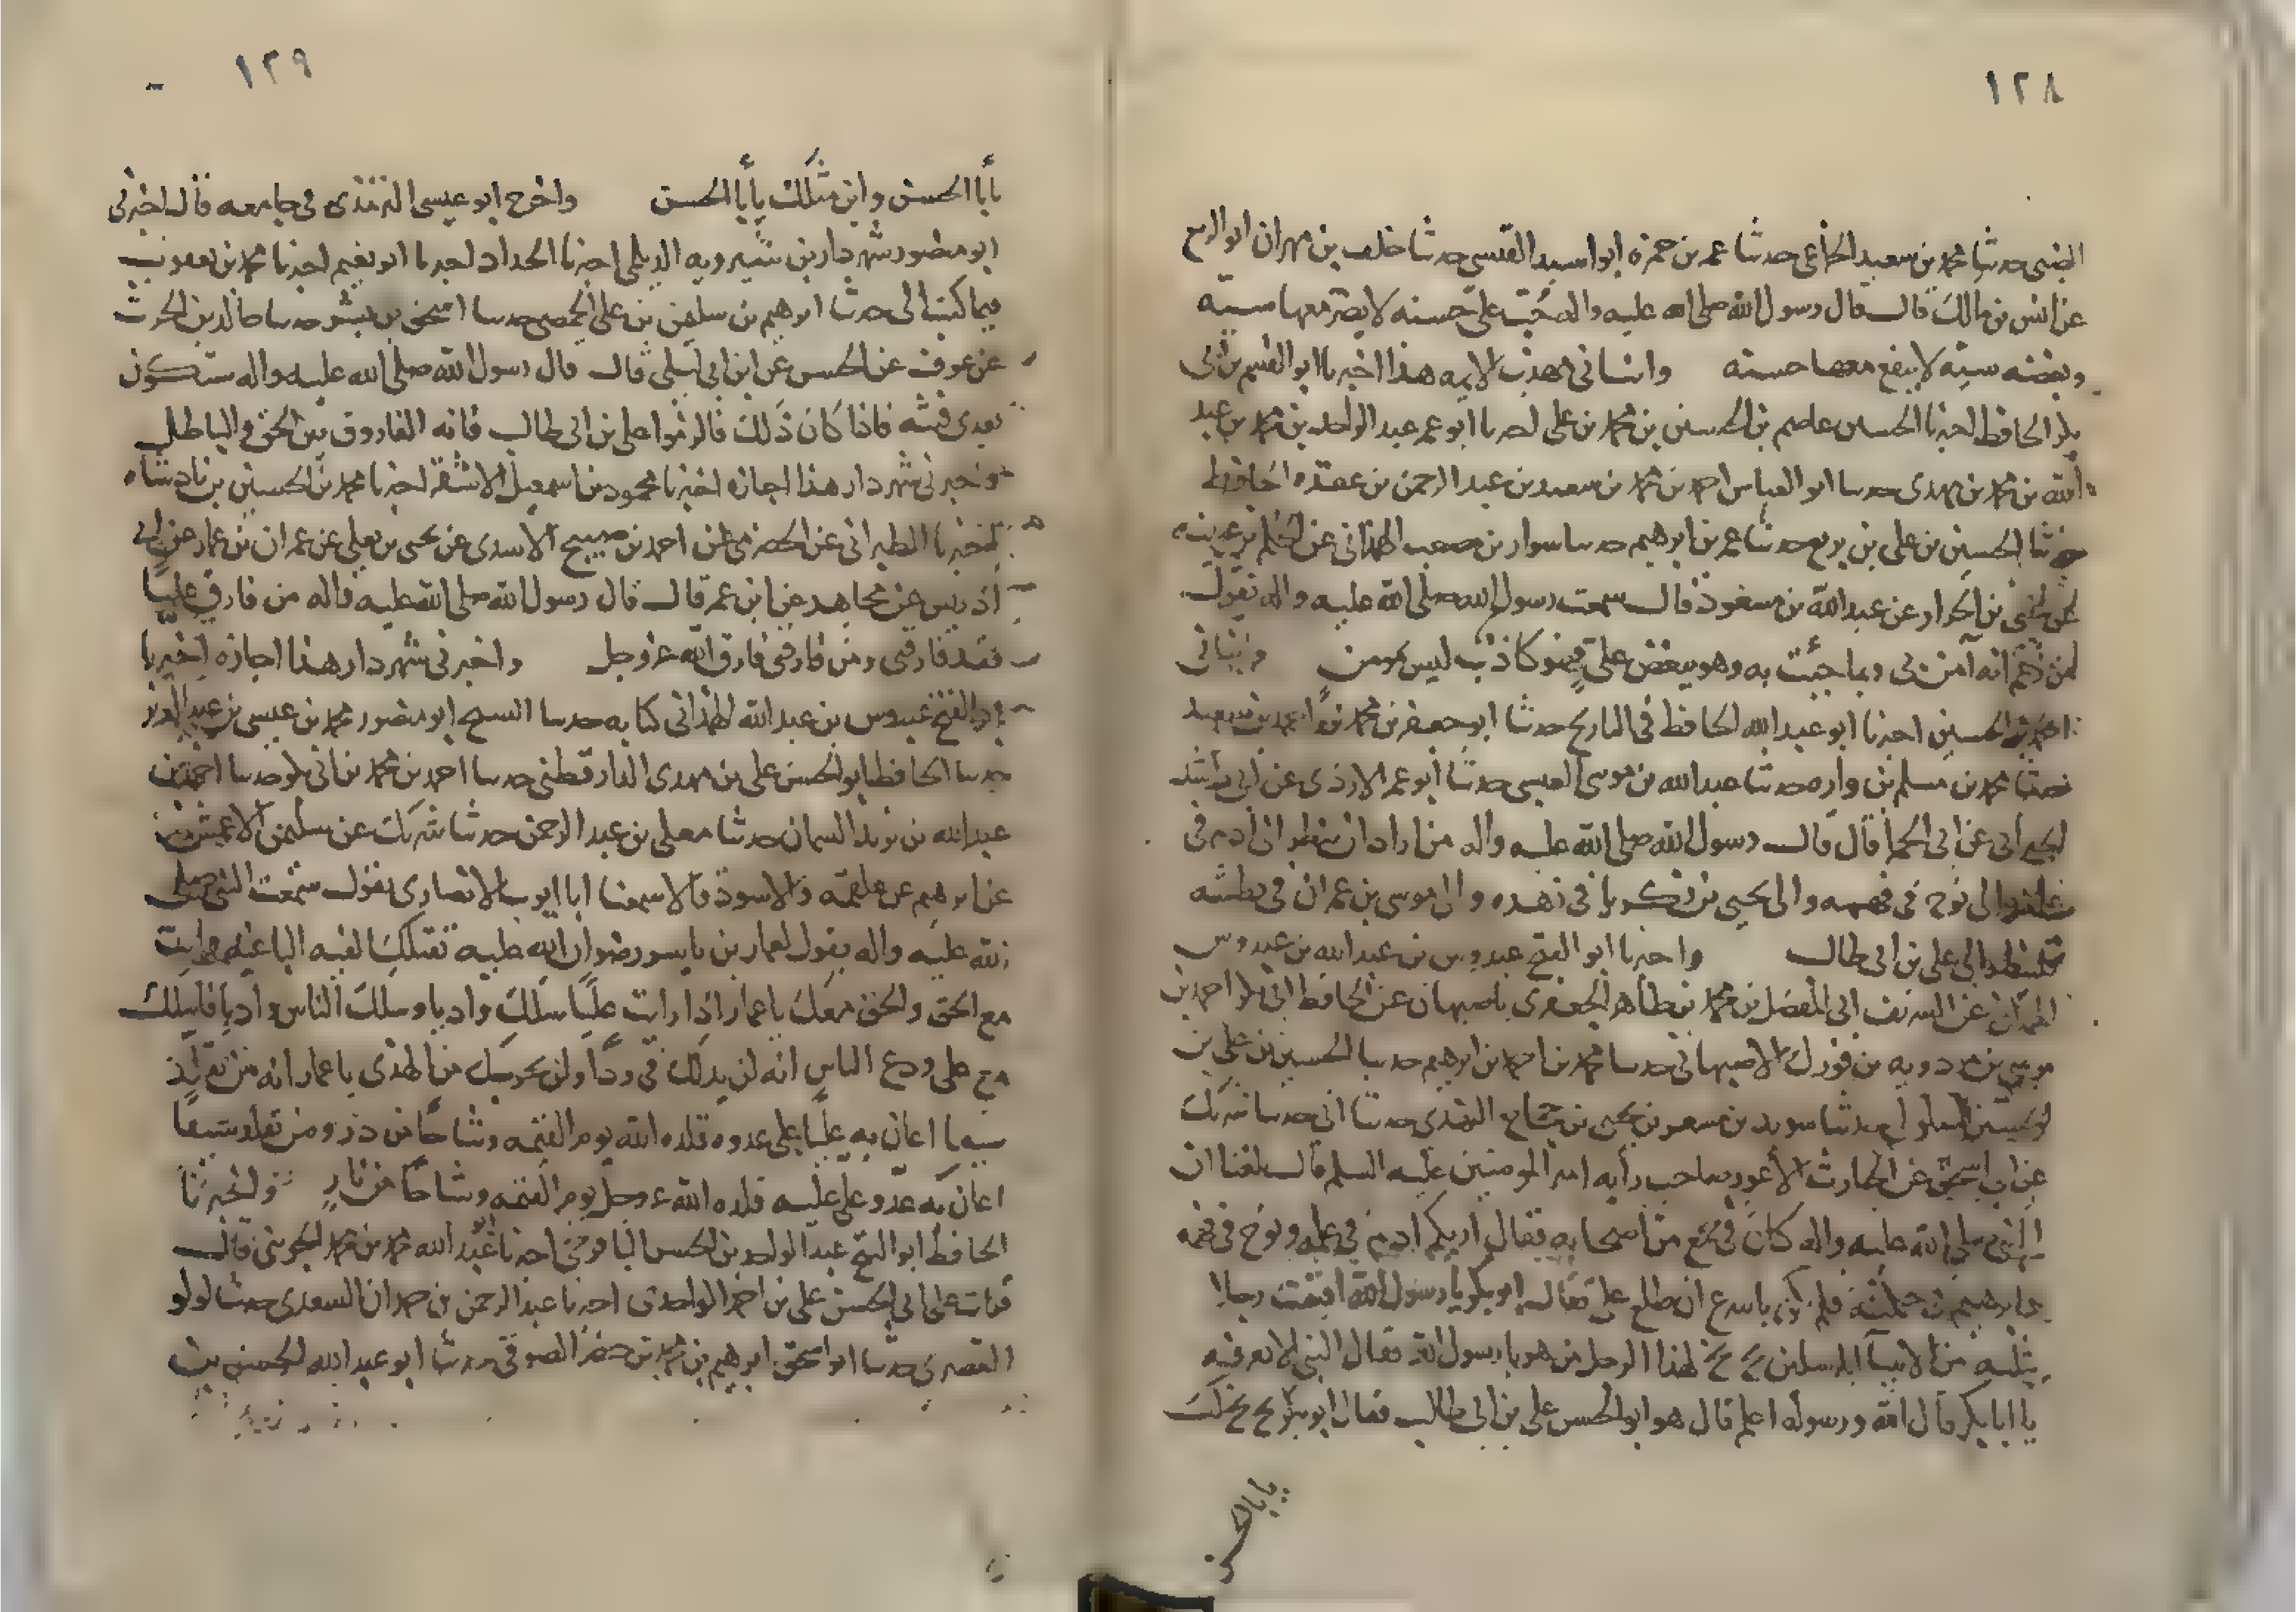 ١٢٨
الضبي حدثنا محمد بن سعيد الخزاعي حدثنا عمر بن حمزه ابو اسيد القيسي حدثنا خلف بن مهران ابو الربيع
عن انس بن مالك قال قال رسول الله صلى الله عليه واله حب علي حسنه لا يضر معها سيئه
وبغضه سيئه لا ينفع معها حسنه وانبأني مهذب الايمه هذا اخبرنا ابو القسم بن ابي
بكر الحافظ اخبرنا الحسين عاصم بن الحسين بن محمد بن علي اخبرنا ابو عمر عبد الواحد بن محمد بن عبد
الله بن محمد بن مهدي حدثنا ابو العباس احمد بن محمد بن سعيد بن عبد الرحمن بن عقده الحافظ
حدثنا الحسين بن علي بن بزيع حدثنا عمر بن ابرهيم حدثنا سوار بن مصعب الهمداني عن الحكم بن عيينه
عن يحيى بن الجزار عن عبد الله بن مسعود قال سمعت رسول الله صلى الله عليه واله يقول
من زعم انه آمن بي وبما جئت به وهو يبغض عليا فهو كاذب ليس بمومن وانبأني
احمد بن الحسين اخبرنا ابو عبد الله الحافظ في التاريخ حدثنا ابو جعفر محمد بن احمد بن سعيد
حدثنا محمد بن مسلم بن واره حدثنا عبد الله بن موسى العبسي حدثنا ابو عمر الازدي عن ابي راشد
الحبراني عن ابي الحمرا قال قال رسول الله صلى الله عليه واله من اراد ان ينظر الى ادم في
علمه والى نوح في فهمه والى يحيى بن زكريا في زهده والى موسى بن عمران في بطشه
فلينظر الى علي بن ابي طالب واخبرنا ابو الفتح عبدوس بن عبد الله بن عبدوس
الهمداني عن الشريف ابي المفضل بن محمد بن طاهر الجعفري باصبهان عن الحافظ ابي بكر احمد بن
موسى بن مردويه بن فورك الاصبهاني حدثنا محمد بن احمد بن ابرهيم حدثنا الحسين بن علي بن
الحسين السلولي حدثنا سويد بن مسعر بن يحيى بن حجاج النهدي حدثنا ابي حدثنا شريك
عن ابي اسحق عن الحارث الاعور صاحب رايه امير المومنين عليه السلم قال بلغنا ان
النبي صلى الله عليه واله كان في جمع من اصحابه فقال اريكم ادم في علمه ونوح في فهمه
وابرهيم في حكمته فلم يكن باسرع ان طلع علي فقال ابو بكر يا رسول الله اقتست رجلا
بثلثه من الانبيآ المرسلين بخ بخ لهذا الرجل من هو يا رسول الله فقال النبي الا تعرفه
يا ابا بكر قال الله ورسوله اعلم قال هو ابو الحسن علي بن ابي طالب فقال ابو بكر بخ بخ لك
يابا الحسن
١٢٩
يأبا الحسن واين مثلك يأبا الحسن واخرج ابو عيسى الترمذي في جامعه قال اخبرني
ابو منصور شهردار بن شيرويه الديلمي اخبرنا الحداد اخبرنا ابو نعيم اخبرنا محمد بن يعقوب
فيما كتب الى حدثنا ابرهيم بن سليمن بن علي الحمصي حدثنا اسحق بن بشر حدثنا خالد بن الحرث
عن عوف عن الحسن عن ابن ابي ليلى قال قال رسول الله صلى الله عليه واله ستكون
بعدي فتنه فاذا كان ذلك فالزموا علي بن ابي طالب فانه الفاروق بين الحق والباطل
واخبرني شهردار هذا اجازه اخبرنا محمود بن اسمعيل الاشقر اخبرنا محمد بن الحسين بن فادشاه
اخبرنا الطبراني عن الحضرمي عن احمد بن صبيح الاسدي عن يحيى بن يعلى عن عمران بن عمار عن ابي
ادريس عن مجاهد عن ابن عمر قال قال رسول الله صلى الله عليه واله من فارق عليا
فقد فارقني ومن فارقني فارق الله عز وجل واخبرني شهردار هذا اجازه اخبرنا
ابو الفتح عبدوس بن عبد الله الهمذاني كتابه حدثنا الشيخ ابو منصور محمد بن عيسى بن عبد العزيز
حدثنا الحافظ ابو الحسن علي بن مهدي الدارقطني حدثنا احمد بن محمد بن ابي بكر حدثنا احمد بن
عبد الله بن يزيد السمان حدثنا معلى بن عبد الرحمن حدثنا شريك عن سليمن الاعمش
عن ابرهيم عن علقمه والاسود قالا سمعنا ابا ايوب الانصاري يقول سمعت النبي صلى
الله عليه واله يقول لعمار بن ياسر رضوان الله عليه تقتلك الفيه الباغيه وانت
مع الحق والحق معك يا عمار اذا رايت عليا سلك واديا وسلك الناس واديا فاسلك
مع علي ودع الناس انه لن يدلك في ردا ولن يخرجك من الهدى يا عمار انه من تقلد
سيفا اعان به عليا على عدوه قلده الله يوم القيمه وشاحا من در ومن تقلد سيفا
اعان به عدو علي عليه قلده الله عز وجل يوم القيمه وشاحا من نار واخبرنا
الحافظ ابو الفتح عبد الواحد بن الحسن الباقرحي اخبرنا عبد الله محمد بن محمد الجويني قال
قرات على ابي الحسن علي بن احمد الواحدي اخبرنا عبد الرحمن بن حمدان السعدي حدثنا لولو
القصري حدثنا ابو اسحق ابرهيم بن محمد بن جعفر الصوفي حدثنا ابو عبد الله الحسين بن